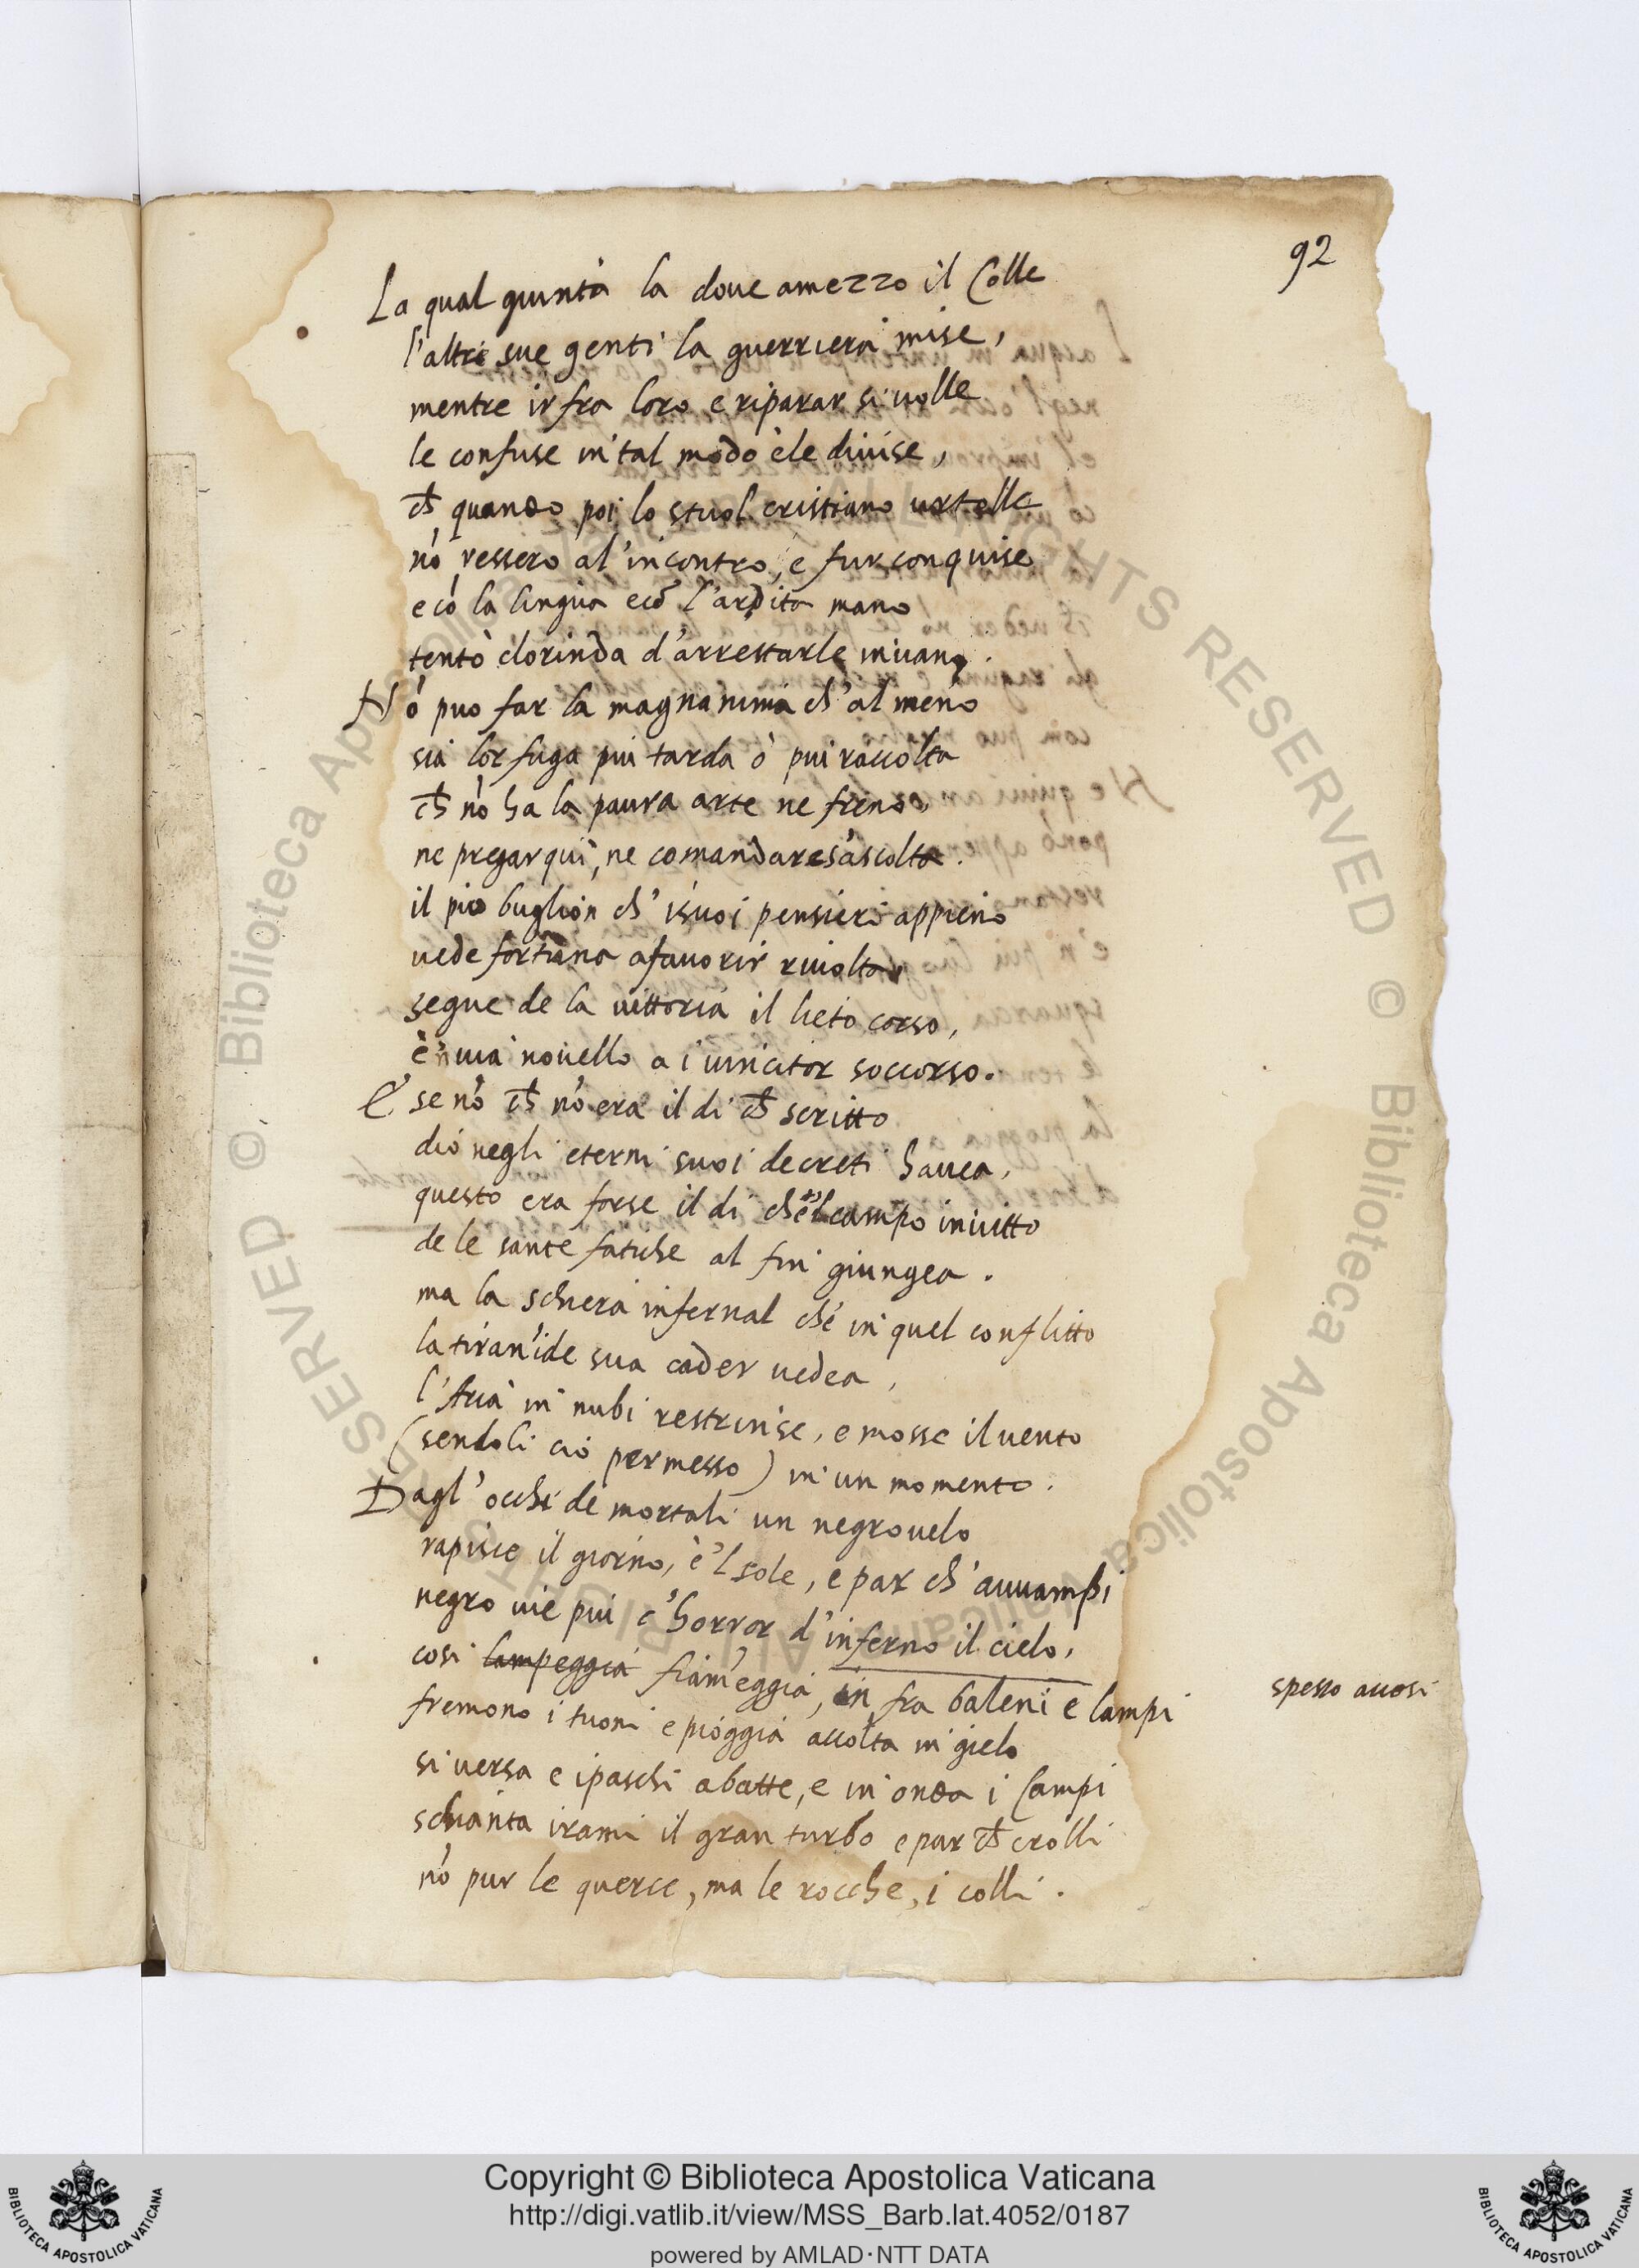 92
La qual giunta la doue amezzo il Colle
l'altre sue genti la guerriera mise,
mentre ir fra loro e riparar si uolle
le confuse in tal modo e le diuise,
ch̄ quando poi lo stuol cristiano urtolle
nō ressero al'incontro, e fur conquise
e cō la lingua e cō l'ardita mano
tentò clorinda d'arrestarle inuano.
Nō puo far la magnanima ch'al meno
sia lor fuga piu tarda ò piu raccolta
ch̄ nō ha la paura arte ne freno,
ne pregar qui, ne comandare s'ascolta.
il pio buglion ch' i suoi pensieri appieno
uede fortuna a fauorir riuolta,
segue de la uittoria il lieto corso,
e 'nuia nouello a i uincitor soccorso.
E se nō ch̄ nō era il di ch̄ scritto
dio negli eterni suoi decreti hauea,
questo era forse il di ch̄ e'l campo inuitto
de le sante fatiche al fin giungea.
ma la schiera infernal che in quel conflitto
la tirānide sua cader uedea,
l'Aria in nubi restrinse, e mosse il uento
(sendoli ciò permesso) in un momento.
Dagl'occhi de mortali un negro uelo
rapisce il giorno, è 'l sole, e par ch'auuampi
negro uie piu c'horror d'inferno il cielo,
cosi lampeggia fiam̄eggia, in fra baleni e lampi
spesso auosi
fremono i tuoni e pioggia accolta in gielo
si uersa e i paschi abatte, e in onda i Campi
schianta i rami il gran turbo e par ch̄ crolli
nō pur le querce, ma le rocche, i colli.
Copyright © Biblioteca Apostolica Vaticana
http://digi.vatlib.it/view/MSS_Barb.lat.4052/0187
powered by AMLAD·NTT DATA
BIBLIOTECA APOSTOLICA VATICANA
BIBLIOTECA APOSTOLICA VATICANA